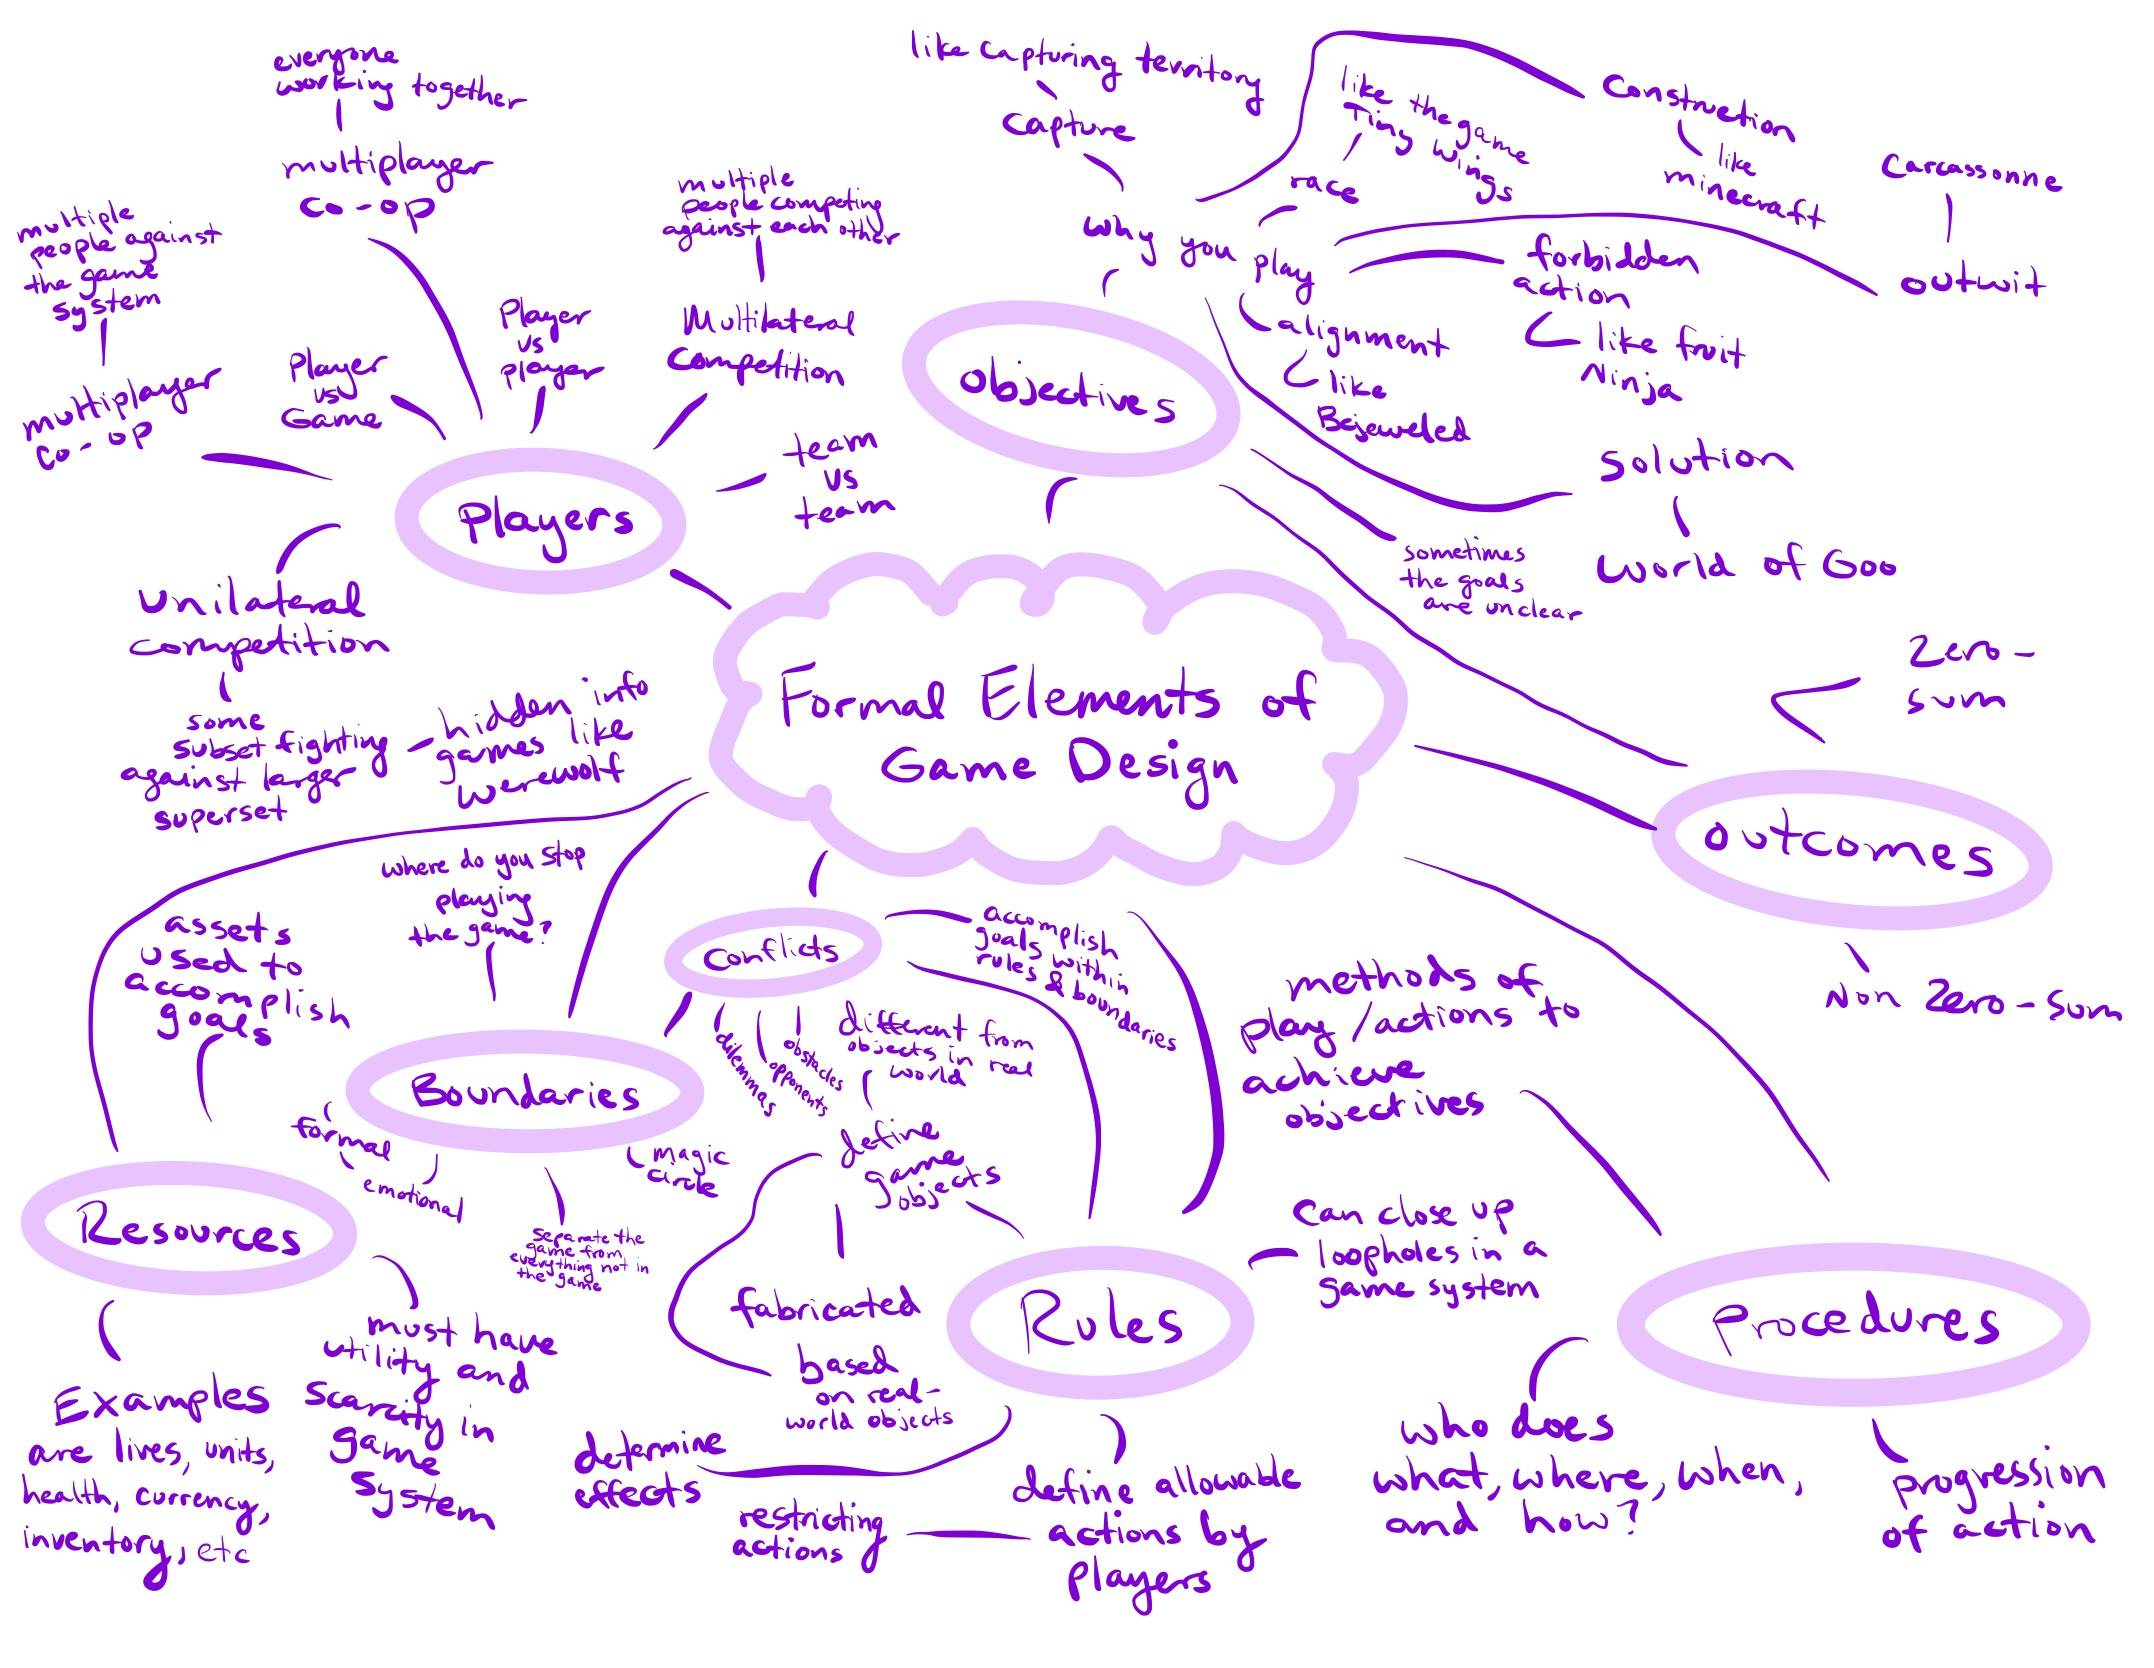 everyone
working together
multiplayer
co-op
multiple
people against
the game
system
multiplayer
co-op
Player
vs
Game
Player
vs
player
multiple
people competing
against each other
Multilateral
Competition
team
vs
team
Players
unilateral
competition
some
subset fighting
against larger
superset
hidden info
games like
werewolf
like capturing territory
capture
like the game
Tiny
Wings
race
construction
like
minecraft
Carcassonne
outwit
why you play
forbidden
action
like fruit
Ninja
alignment
like
Bejeweled
objectives
solution
World of Goo
sometimes
the goals
are unclear
Formal Elements of
Game Design
Zero-
sum
outcomes
Non Zero-sum
where do you stop
playing
the game?
assets
used to
accomplish
goals
Conflicts
accomplish
goals within
rules & boundaries
dilemmas
opponents
obstacles
different from
objects in real
world
define
game
objects
methods of
play/actions to
achieve
objectives
Boundaries
formal
emotional
magic
circle
separate the
game from
everything not in
the game
Resources
Examples
are lives, units,
health, currency,
inventory, etc
must have
utility and
scarcity in
game
system
fabricated
based
on real-
world objects
Rules
can close up
loopholes in a
game system
determine
effects
restricting
actions
define allowable
actions by
players
Procedures
who does
what, where, when,
and how?
progression
of action